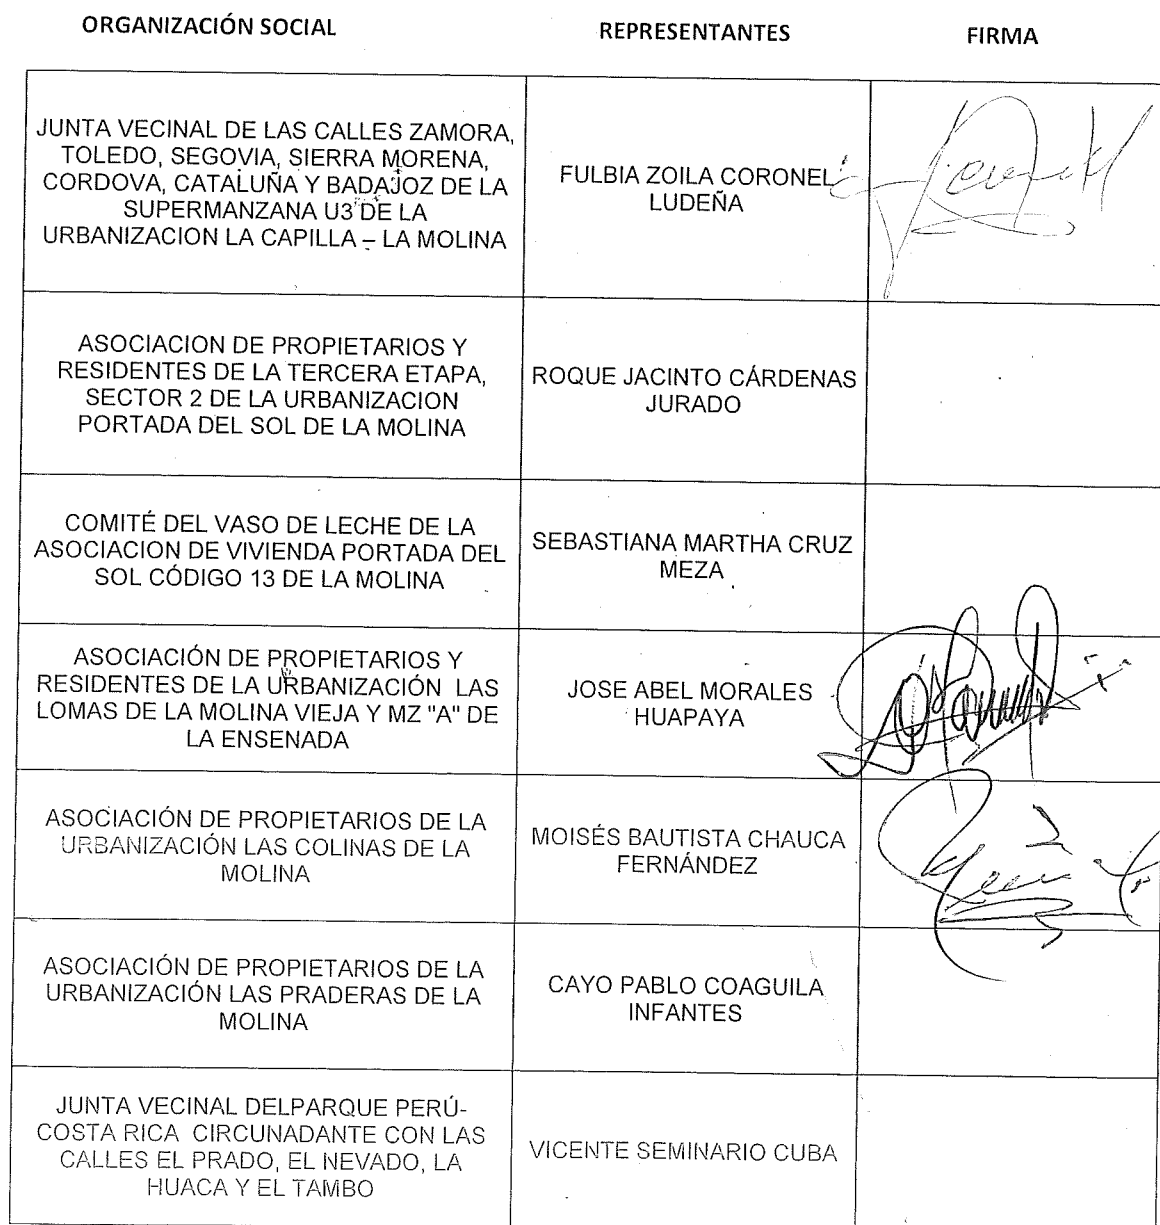 ORGANIZACIÓN SOCIAL REPRESENTANTES FIRMA
JUNTA VECINAL DE LAS CALLES ZAMORA,
TOLEDO, SEGOVIA, SIERRA MORENA,
CORDOVA, CATALUÑA Y BADAJOZ DE LA
SUPERMANZANA U3 DE LA
URBANIZACION LA CAPILLA – LA MOLINA
FULBIA ZOILA CORONEL
LUDEÑA
ASOCIACION DE PROPIETARIOS Y
RESIDENTES DE LA TERCERA ETAPA,
SECTOR 2 DE LA URBANIZACION
PORTADA DEL SOL DE LA MOLINA
ROQUE JACINTO CÁRDENAS
JURADO
COMITÉ DEL VASO DE LECHE DE LA
ASOCIACION DE VIVIENDA PORTADA DEL
SOL CÓDIGO 13 DE LA MOLINA
SEBASTIANA MARTHA CRUZ
MEZA
ASOCIACIÓN DE PROPIETARIOS Y
RESIDENTES DE LA URBANIZACIÓN LAS
LOMAS DE LA MOLINA VIEJA Y MZ "A" DE
LA ENSENADA
JOSE ABEL MORALES
HUAPAYA
ASOCIACIÓN DE PROPIETARIOS DE LA
URBANIZACIÓN LAS COLINAS DE LA
MOLINA
MOISÉS BAUTISTA CHAUCA
FERNÁNDEZ
ASOCIACIÓN DE PROPIETARIOS DE LA
URBANIZACIÓN LAS PRADERAS DE LA
MOLINA
CAYO PABLO COAGUILA
INFANTES
JUNTA VECINAL DELPARQUE PERÚ-
COSTA RICA CIRCUNADANTE CON LAS
CALLES EL PRADO, EL NEVADO, LA
HUACA Y EL TAMBO
VICENTE SEMINARIO CUBA